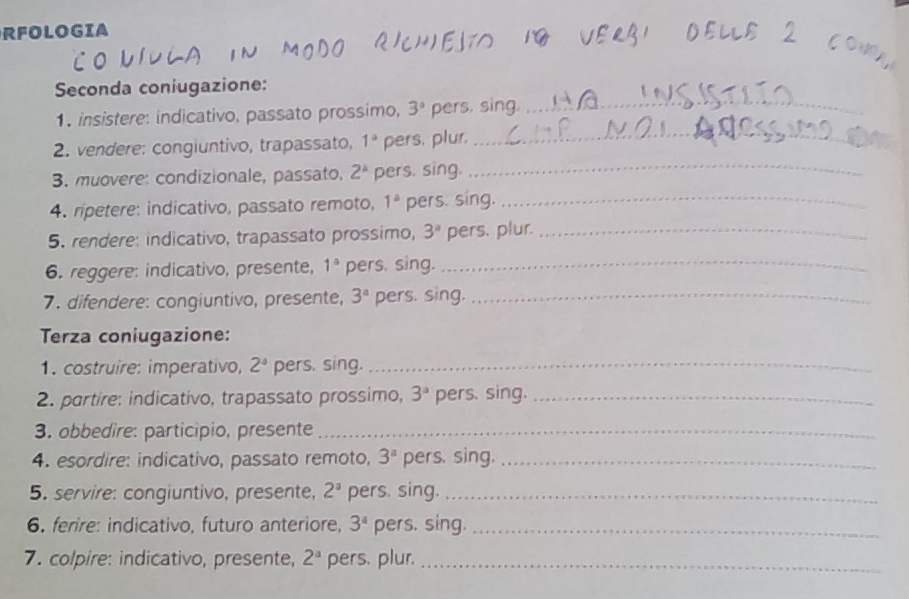 RFOLOGIA
CONIUGA IN MODO RICHIESTO VERBI DELLE 2
Seconda coniugazione:
1. insistere: indicativo, passato prossimo, 3ª pers. sing. HA INSISTITO
2. vendere: congiuntivo, trapassato, 1ª pers. plur. CHE NOI
3. muovere: condizionale, passato, 2ª pers. sing.
4. ripetere: indicativo, passato remoto, 1ª pers. sing.
5. rendere: indicativo, trapassato prossimo, 3ª pers. plur.
6. reggere: indicativo, presente, 1ª pers. sing.
7. difendere: congiuntivo, presente, 3ª pers. sing.
Terza coniugazione:
1. costruire: imperativo, 2ª pers. sing.
2. partire: indicativo, trapassato prossimo, 3ª pers. sing.
3. obbedire: participio, presente
4. esordire: indicativo, passato remoto, 3ª pers. sing.
5. servire: congiuntivo, presente, 2ª pers. sing.
6. ferire: indicativo, futuro anteriore, 3ª pers. sing.
7. colpire: indicativo, presente, 2ª pers. plur.